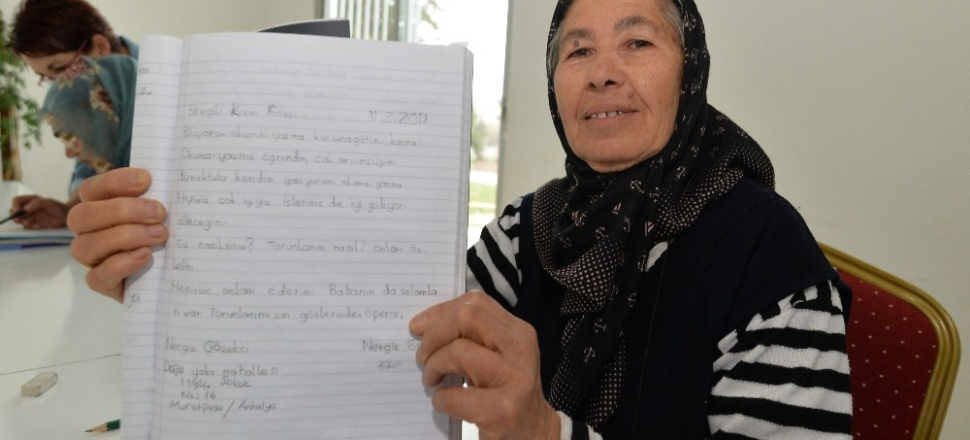 Sevgili Kızım 11.3.2017
Biliyorsun okuma yazma kursuna gittim kızım
Okuma yazma öğrendim çok sevinçliyim.
Bu mektubu kendim yazıyorum okuma yazma
Hepimiz çok iyiyiz işlerimiz de iyi gidiyor
gideceğim.
Siz nasılsınız? Torunlarım nasıl? onları öz-
ledim
Hepinize selam ederim. Babanın da selamla
rı var Torunlarımızın gözlerinden öperiz.
Nergiz Nergiz
mahalles
Sokak
No: 16
Muratpaşa / Antalya